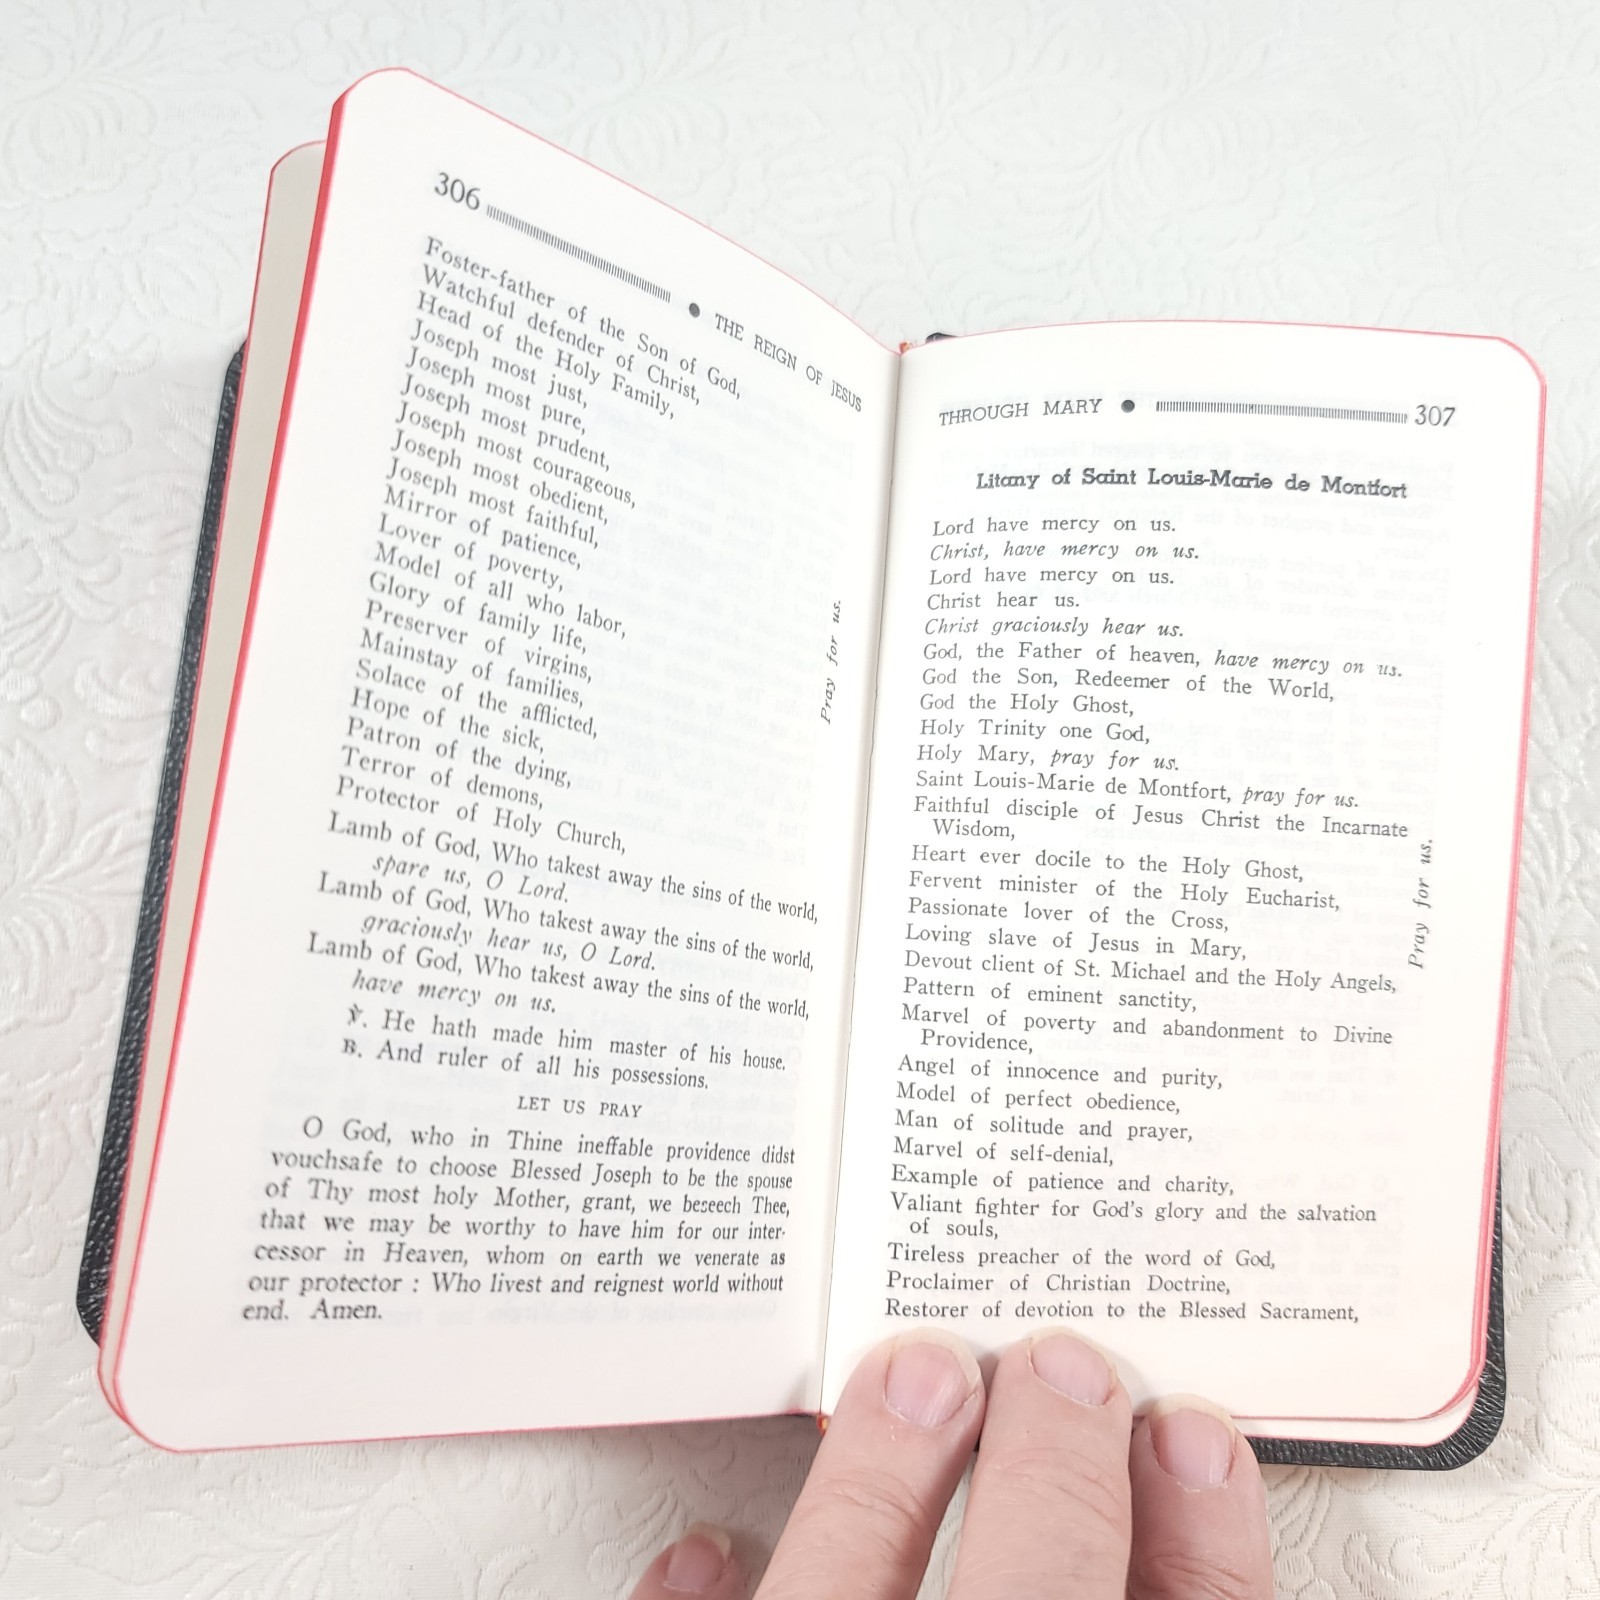 306 • THE REIGN OF JESUS
Foster-father of the Son of God,
Watchful defender of Christ,
Head of the Holy Family,
Joseph most just,
Joseph most pure,
Joseph most prudent,
Joseph most courageous,
Joseph most obedient,
Joseph most faithful,
Mirror of patience,
Lover of poverty,
Model of all who labor,
Glory of family life,
Preserver of virgins,
Mainstay of families,
Solace of the afflicted,
Hope of the sick,
Patron of the dying,
Terror of demons,
Protector of Holy Church,
Pray for us.
Lamb of God, Who takest away the sins of the world,
spare us, O Lord.
Lamb of God, Who takest away the sins of the world,
graciously hear us, O Lord.
Lamb of God, Who takest away the sins of the world,
have mercy on us.
℣. He hath made him master of his house.
℟. And ruler of all his possessions.
LET US PRAY
O God, who in Thine ineffable providence didst
vouchsafe to choose Blessed Joseph to be the spouse
of Thy most holy Mother, grant, we beseech Thee,
that we may be worthy to have him for our inter-
cessor in Heaven, whom on earth we venerate as
our protector : Who livest and reignest world without
end. Amen.
THROUGH MARY • 307
Litany of Saint Louis-Marie de Montfort
Lord have mercy on us.
Christ, have mercy on us.
Lord have mercy on us.
Christ hear us.
Christ graciously hear us.
God, the Father of heaven, have mercy on us.
God the Son, Redeemer of the World,
God the Holy Ghost,
Holy Trinity one God,
Holy Mary, pray for us.
Saint Louis-Marie de Montfort, pray for us.
Faithful disciple of Jesus Christ the Incarnate
Wisdom,
Heart ever docile to the Holy Ghost,
Fervent minister of the Holy Eucharist,
Passionate lover of the Cross,
Loving slave of Jesus in Mary,
Devout client of St. Michael and the Holy Angels,
Pattern of eminent sanctity,
Marvel of poverty and abandonment to Divine
Providence,
Angel of innocence and purity,
Model of perfect obedience,
Man of solitude and prayer,
Marvel of self-denial,
Example of patience and charity,
Valiant fighter for God's glory and the salvation
of souls,
Tireless preacher of the word of God,
Proclaimer of Christian Doctrine,
Restorer of devotion to the Blessed Sacrament,
Pray for us.